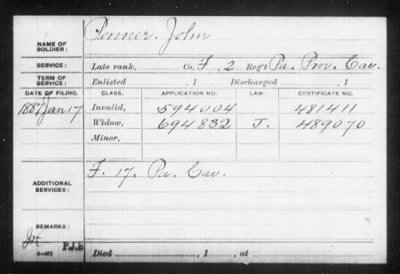 NAME OF SOLDIER: Penner. John
SERVICE: Late rank, Co. F. 2 Reg't Pa. Prov. Cav.
TERM OF SERVICE: Enlisted , 1 Discharged , 1
DATE OF FILING. CLASS. APPLICATION NO. LAW. CERTIFICATE NO.
1887 Jan 17 Invalid, 594004 481411
Widow, 694832 J. 489070
Minor,
ADDITIONAL SERVICES: F. 17. Pa. Cav.
REMARKS:
P.J.b
Died , 1 , at